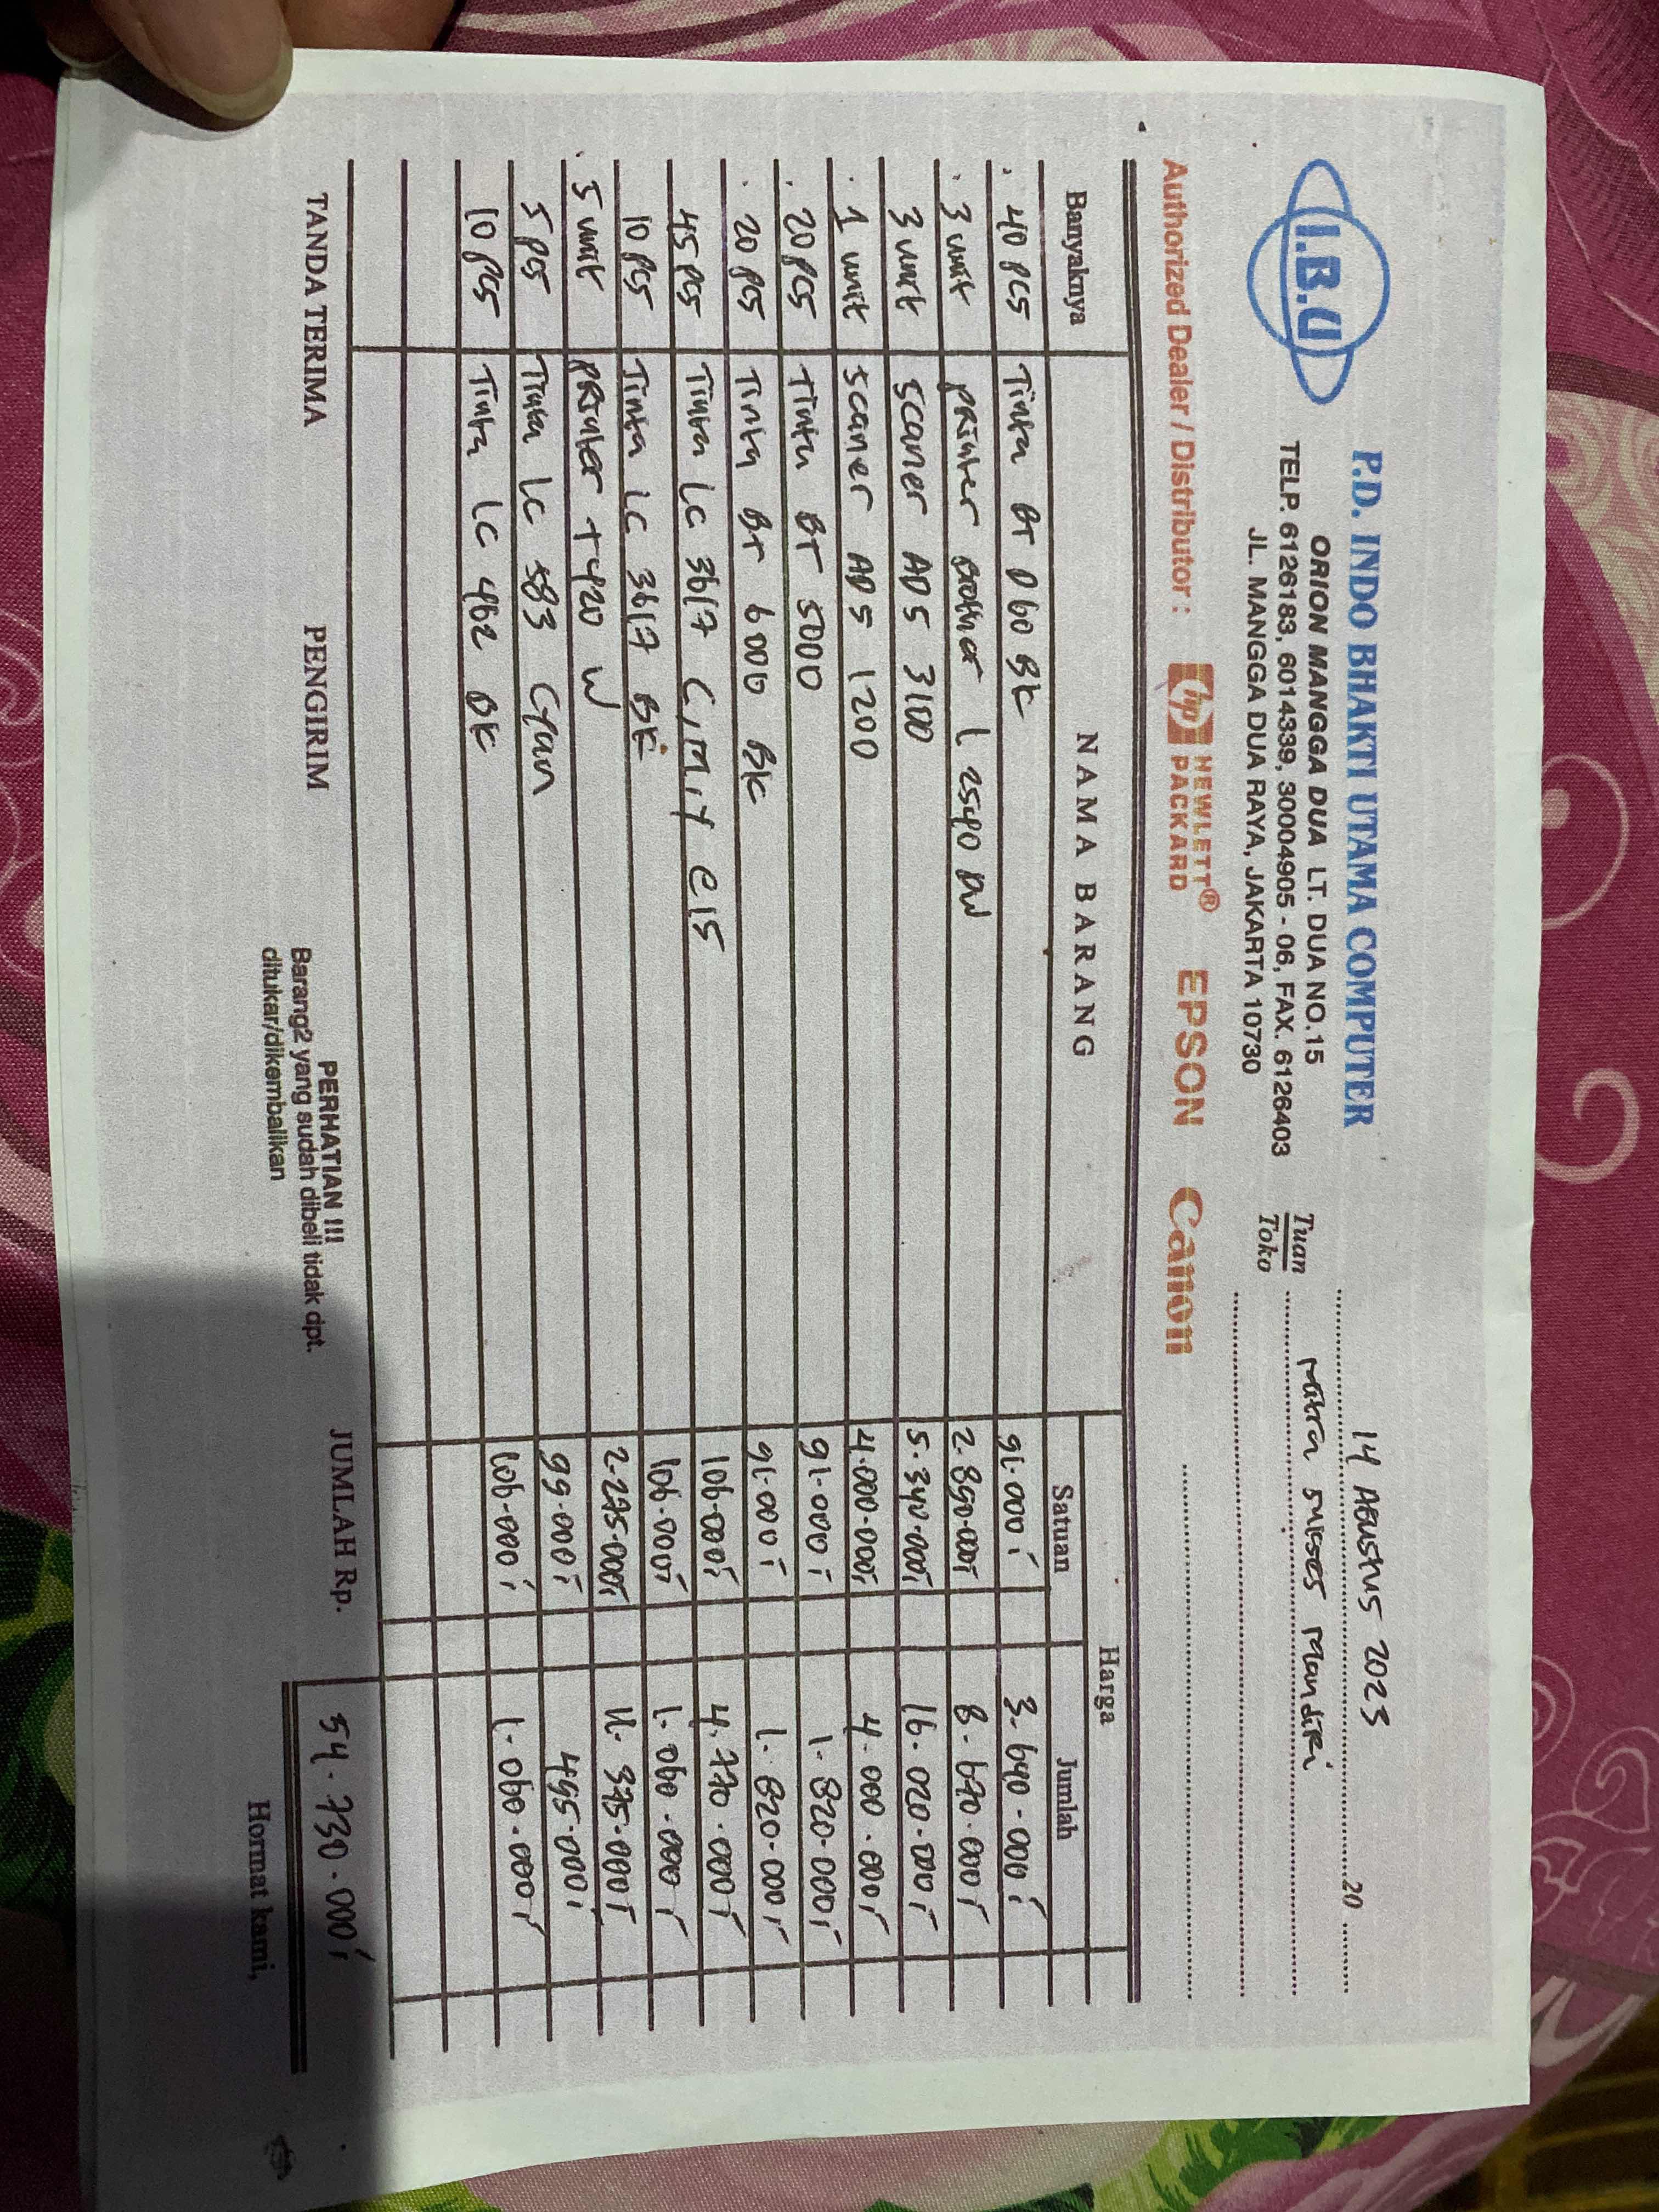 I.B.U
P.D. INDO BHAKTI UTAMA COMPUTER
ORION MANGGA DUA LT. DUA NO.15
TELP. 6126183, 6014339, 30004905 - 06, FAX. 6126403
JL. MANGGA DUA RAYA, JAKARTA 10730
14 AGUSTUS 2023 20
Tuan
Toko
Mitra Sukses Mandiri
Authorized Dealer / Distributor : hp HEWLETT® PACKARD EPSON Canon
Banyaknya NAMA BARANG Harga
Satuan Jumlah
40 pcs Tinta BT D60 BK 91.000 3.640.000
3 unit printer Brother L 2540 DW 2.890.000 8.670.000
3 unit Scaner ADS 3100 5.340.000 16.020.000
1 unit Scaner ADS 1200 4.000.000 4.000.000
20 pcs Tinta BT 5000 91.000 1.820.000
20 pcs Tinta BT 6000 BK 91.000 1.820.000
45 pcs Tinta LC 3617 C,M,Y @15 106.000 4.770.000
10 pcs Tinta LC 3617 BK 106.000 1.060.000
5 unit printer T420 W 2.275.000 11.375.000
5 pcs Tinta LC 583 Cyan 99.000 495.000
10 pcs Tinta LC 462 BK 106.000 1.060.000
TANDA TERIMA PENGIRIM PERHATIAN !!! JUMLAH Rp. 54.730.000
Barang2 yang sudah dibeli tidak dpt.
ditukar/dikembalikan
Hormat kami,